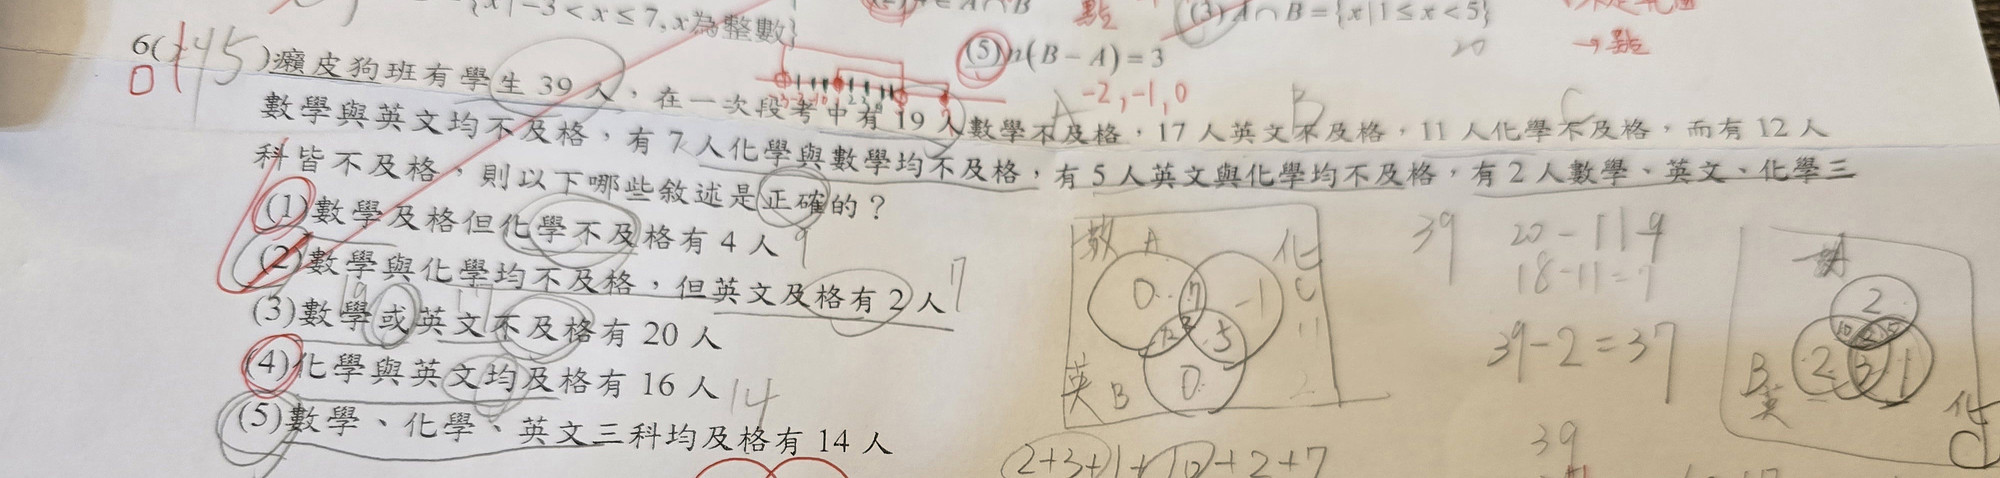 ={x|-3<x≤7,x為整數}
(3)A∩B={x|1≤x<5}
(5)n(B-A)=3
-2,-1,0
20
→點
6( 145 )癩皮狗班有學生39人,在一次段考中有19人數學不及格,17人英文不及格,11人化學不及格,而有12人
A B C
數學與英文均不及格,有7人化學與數學均不及格,有5人英文與化學均不及格,有2人數學、英文、化學三
科皆不及格,則以下哪些敘述是正確的?
(1)數學及格但化學不及格有4人
(2)數學與化學均不及格,但英文及格有2人
(3)數學或英文不及格有20人
(4)化學與英文均及格有16人
(5)數學、化學、英文三科均及格有14人
9
7
19 17
14
數 A 化 C 11
0 7 -1
12 2 5
英 B 0
39 20-11=9
18-11=7
39-2=37
39
2
10 2 5
B 2 3 1
英 化 C
2+3+1+10+2+7